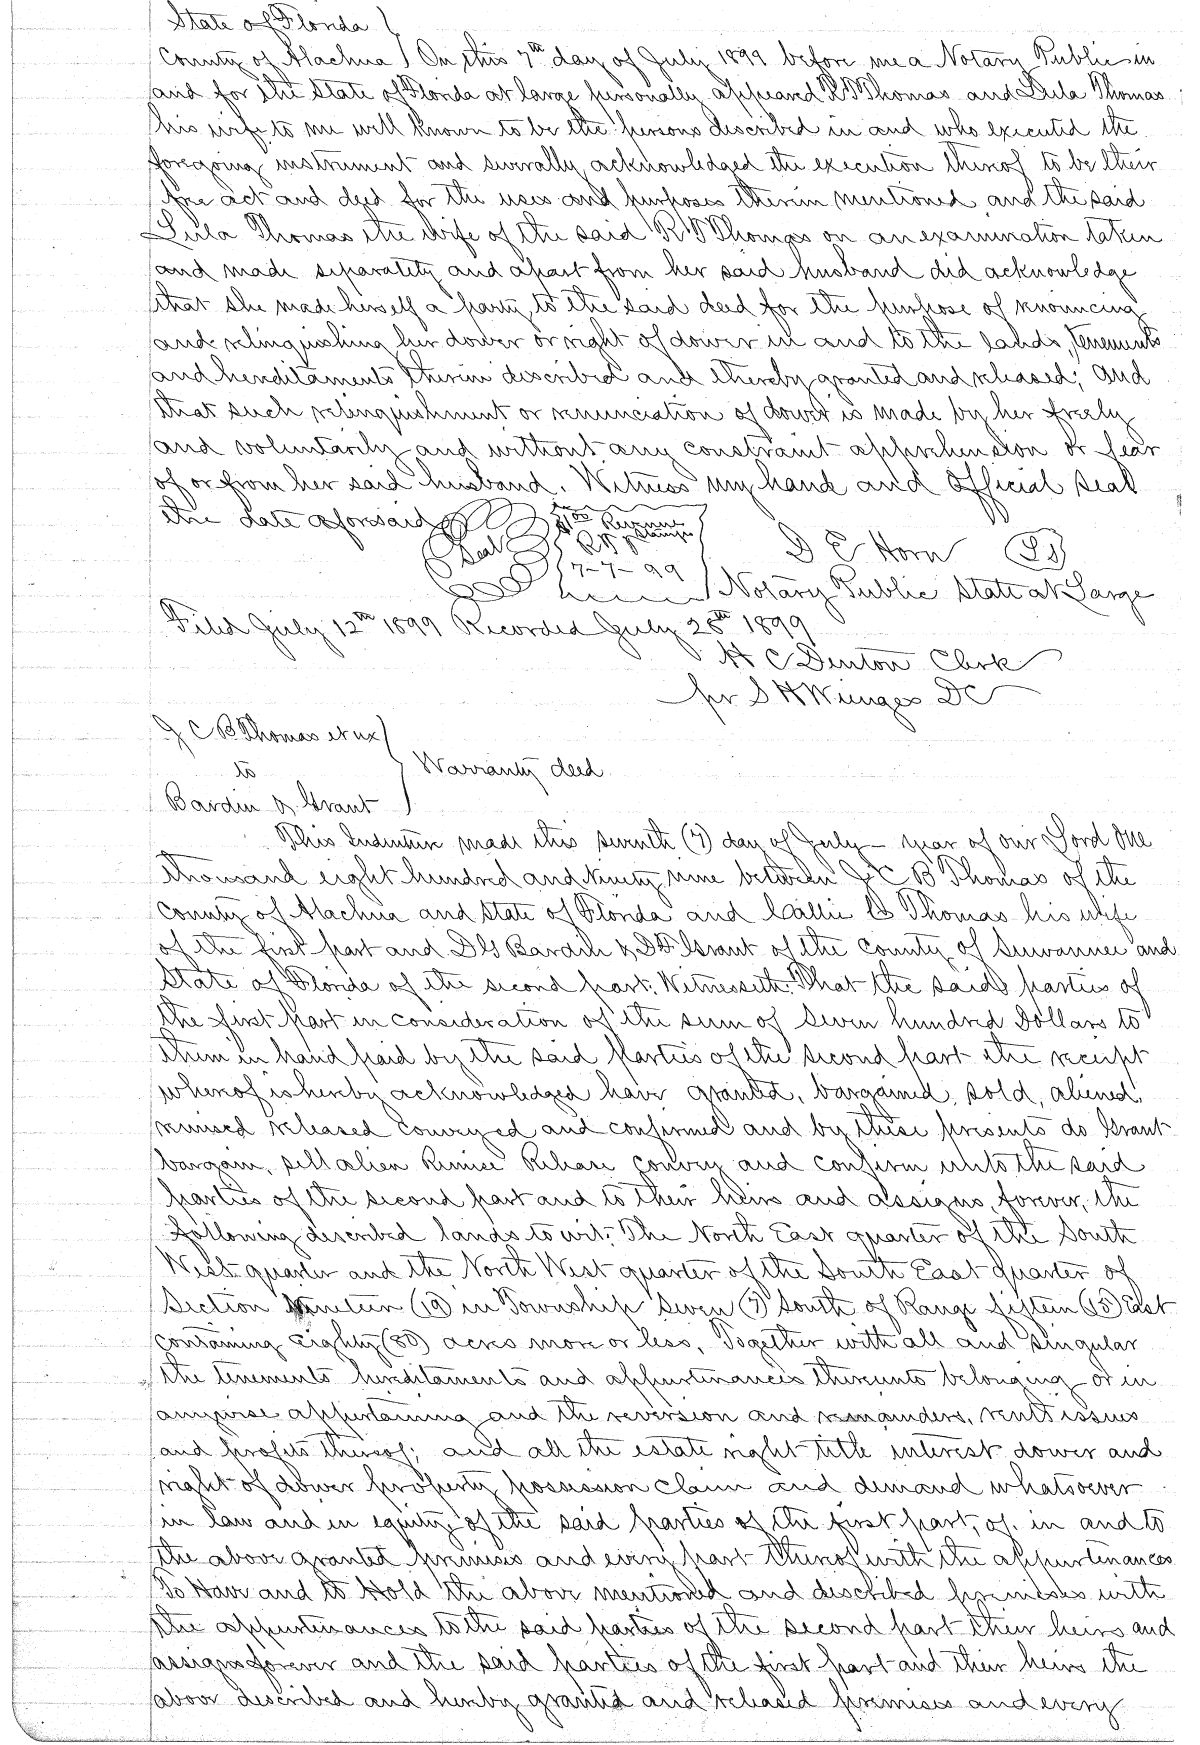 State of Florida
County of Alachua } On this 7th day of July 1899 before me a Notary Public in
and for the State of Florida at large personally appeared R T Thomas and Lula Thomas
his wife to me well known to be the persons described in and who executed the
foregoing instrument and severally acknowledged the execution thereof to be their
free act and deed for the uses and purposes therein mentioned and the said
Lula Thomas the wife of the said R T Thomas on an examination taken
and made separately and apart from her said husband did acknowledge
that she made herself a party to the said deed for the purpose of renouncing
and relinquishing her dower or right of dower in and to the lands, tenements
and hereditaments therein described and thereby granted and released; and
that such relinquishment or renunciation of dower is made by her freely
and voluntarily and without any constraint apprehension or fear
of or from her said husband. Witness my hand and official seal
the date aforesaid
Seal
Revenue
Stamps
7-7-99
D E Horn (LS)
Notary Public State at Large
Filed July 12th 1899 Recorded July 28th 1899
H C Denton Clerk
pr S H Wienges DC
J C B Thomas et ux
to
Bardin & Grant
Warranty deed
This Indenture made this seventh (7) day of July – year of our Lord One
thousand eight hundred and ninety nine between J C B Thomas of the
County of Alachua and State of Florida and Callie Thomas his wife
of the first part and D G Bardin & D F Grant of the County of Suwannee and
State of Florida of the second part. Witnesseth. That the said parties of
the first part in consideration of the sum of Seven hundred Dollars to
them in hand paid by the said parties of the second part the receipt
whereof is hereby acknowledged have granted, bargained, sold, aliened,
remised released conveyed and confirmed and by these presents do Grant
bargain, sell alien Remise Release convey and confirm unto the said
parties of the second part and to their heirs and assigns, forever, the
following described lands to wit: The North East quarter of the South
West quarter and the North West quarter of the South East quarter of
Section Nineteen (19) in Township Seven (7) South of Range fifteen (15) East
containing Eighty (80) acres more or less, Together with all and singular
the tenements hereditaments and appurtenances thereunto belonging or in
anywise appertaining and the reversion and remainders, rents issues
and profits thereof; and all the estate right title interest dower and
right of dower property possession claim and demand whatsoever
in law and in equity of the said parties of the first part, of, in and to
the above granted premises and every part thereof with the appurtenances
To Have and to Hold the above mentioned and described premises with
the appurtenances to the said parties of the second part their heirs and
assigns forever and the said parties of the first part and their heirs the
above described and hereby granted and released premises and every